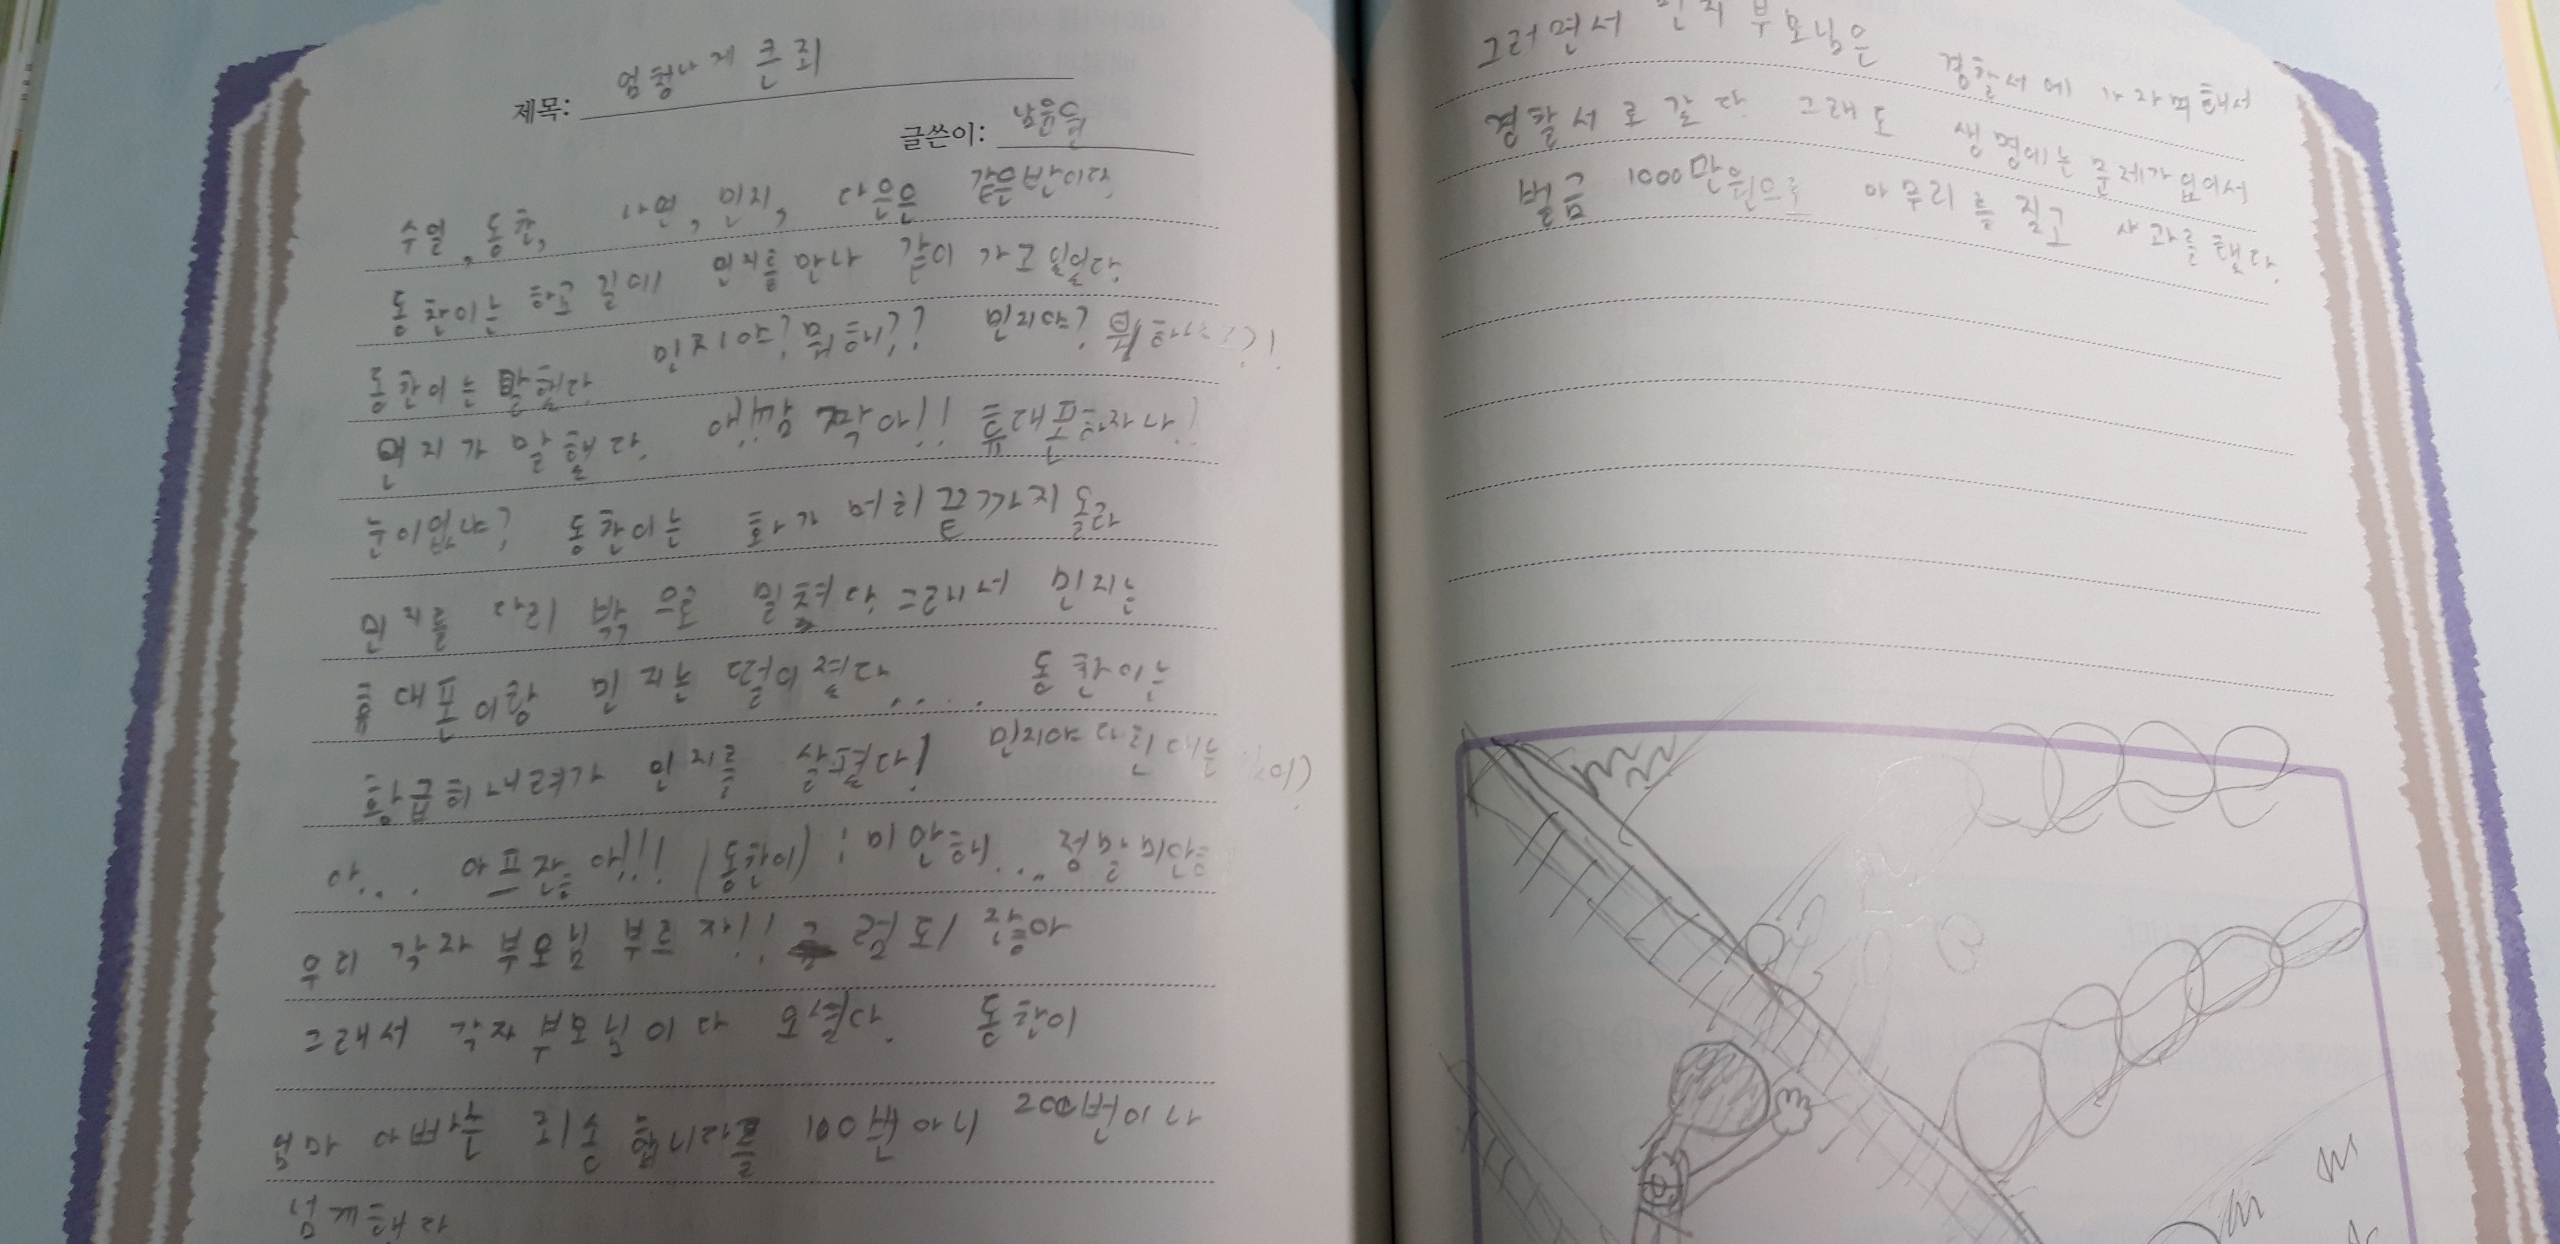 제목: 엄청나게 큰 죄
글쓴이:
수열, 동찬, 나연, 민지, 다은은 같은반이다.
동찬이는 하교 길에 민지를 만나 같이 가고 있었다.
동찬이는 말했다. 민지야? 뭐해?? 민지야? 뭐
민지가 말했다. 애!!깜짝아!! 휴대폰하자나!
눈이없냐? 동찬이는 화가 머리끝까지 올라
민지를 다리 밖으로 밀쳤다. 그래서 민지는
휴대폰이랑 민지는 떨어졌다..... 동찬이는
황급히 내려가 민지를 살폈다! 민지야 다친대는
아... 아프잖아!!! (동찬이) : 미안해... 정말미안해
우리 각자 부모님 부르자!! 그 럼 되잖아
그래서 각자부모님이 다 오셨다. 동찬이
엄마 아빠는 죄송합니다를 100번 아니 200번이나
넘게했다
그러면서 민지 부모님은 경찰서에 가자며 해서
경찰서로 갔다. 그래도 생명에는 문제가없어서
벌금 1000만원으로 마무리를 질고 사과를 했다.